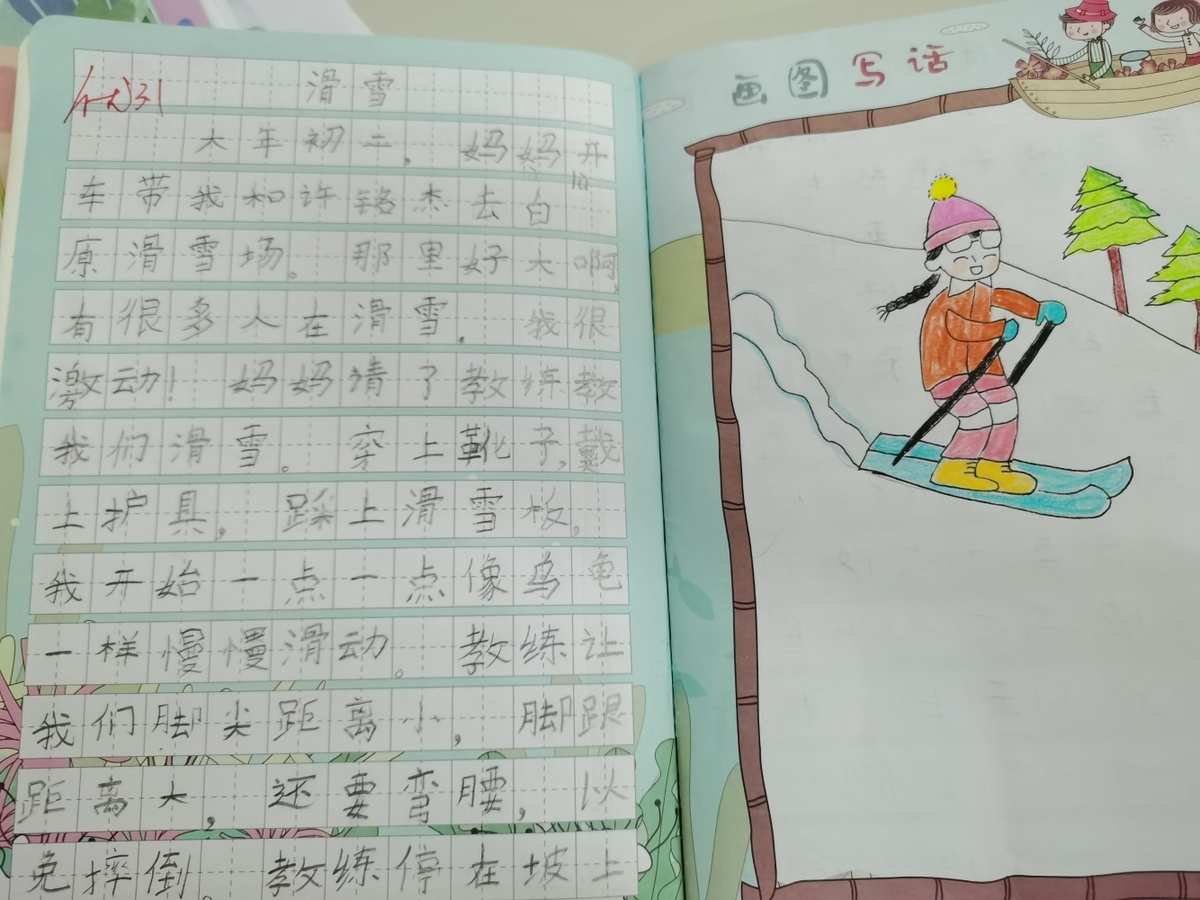 优31
滑雪
大年初二，妈妈开
车带我和许铭杰去白
原滑雪场。那里好大啊，
有很多人在滑雪。我很
激动！妈妈请了教练教
我们滑雪。穿上靴子，戴
上护具，踩上滑雪板。
我开始一点一点像乌龟
一样慢慢滑动。教练让
我们脚尖距离小，脚跟
距离大，还要弯腰，以
免摔倒。教练停在坡上
画图写话